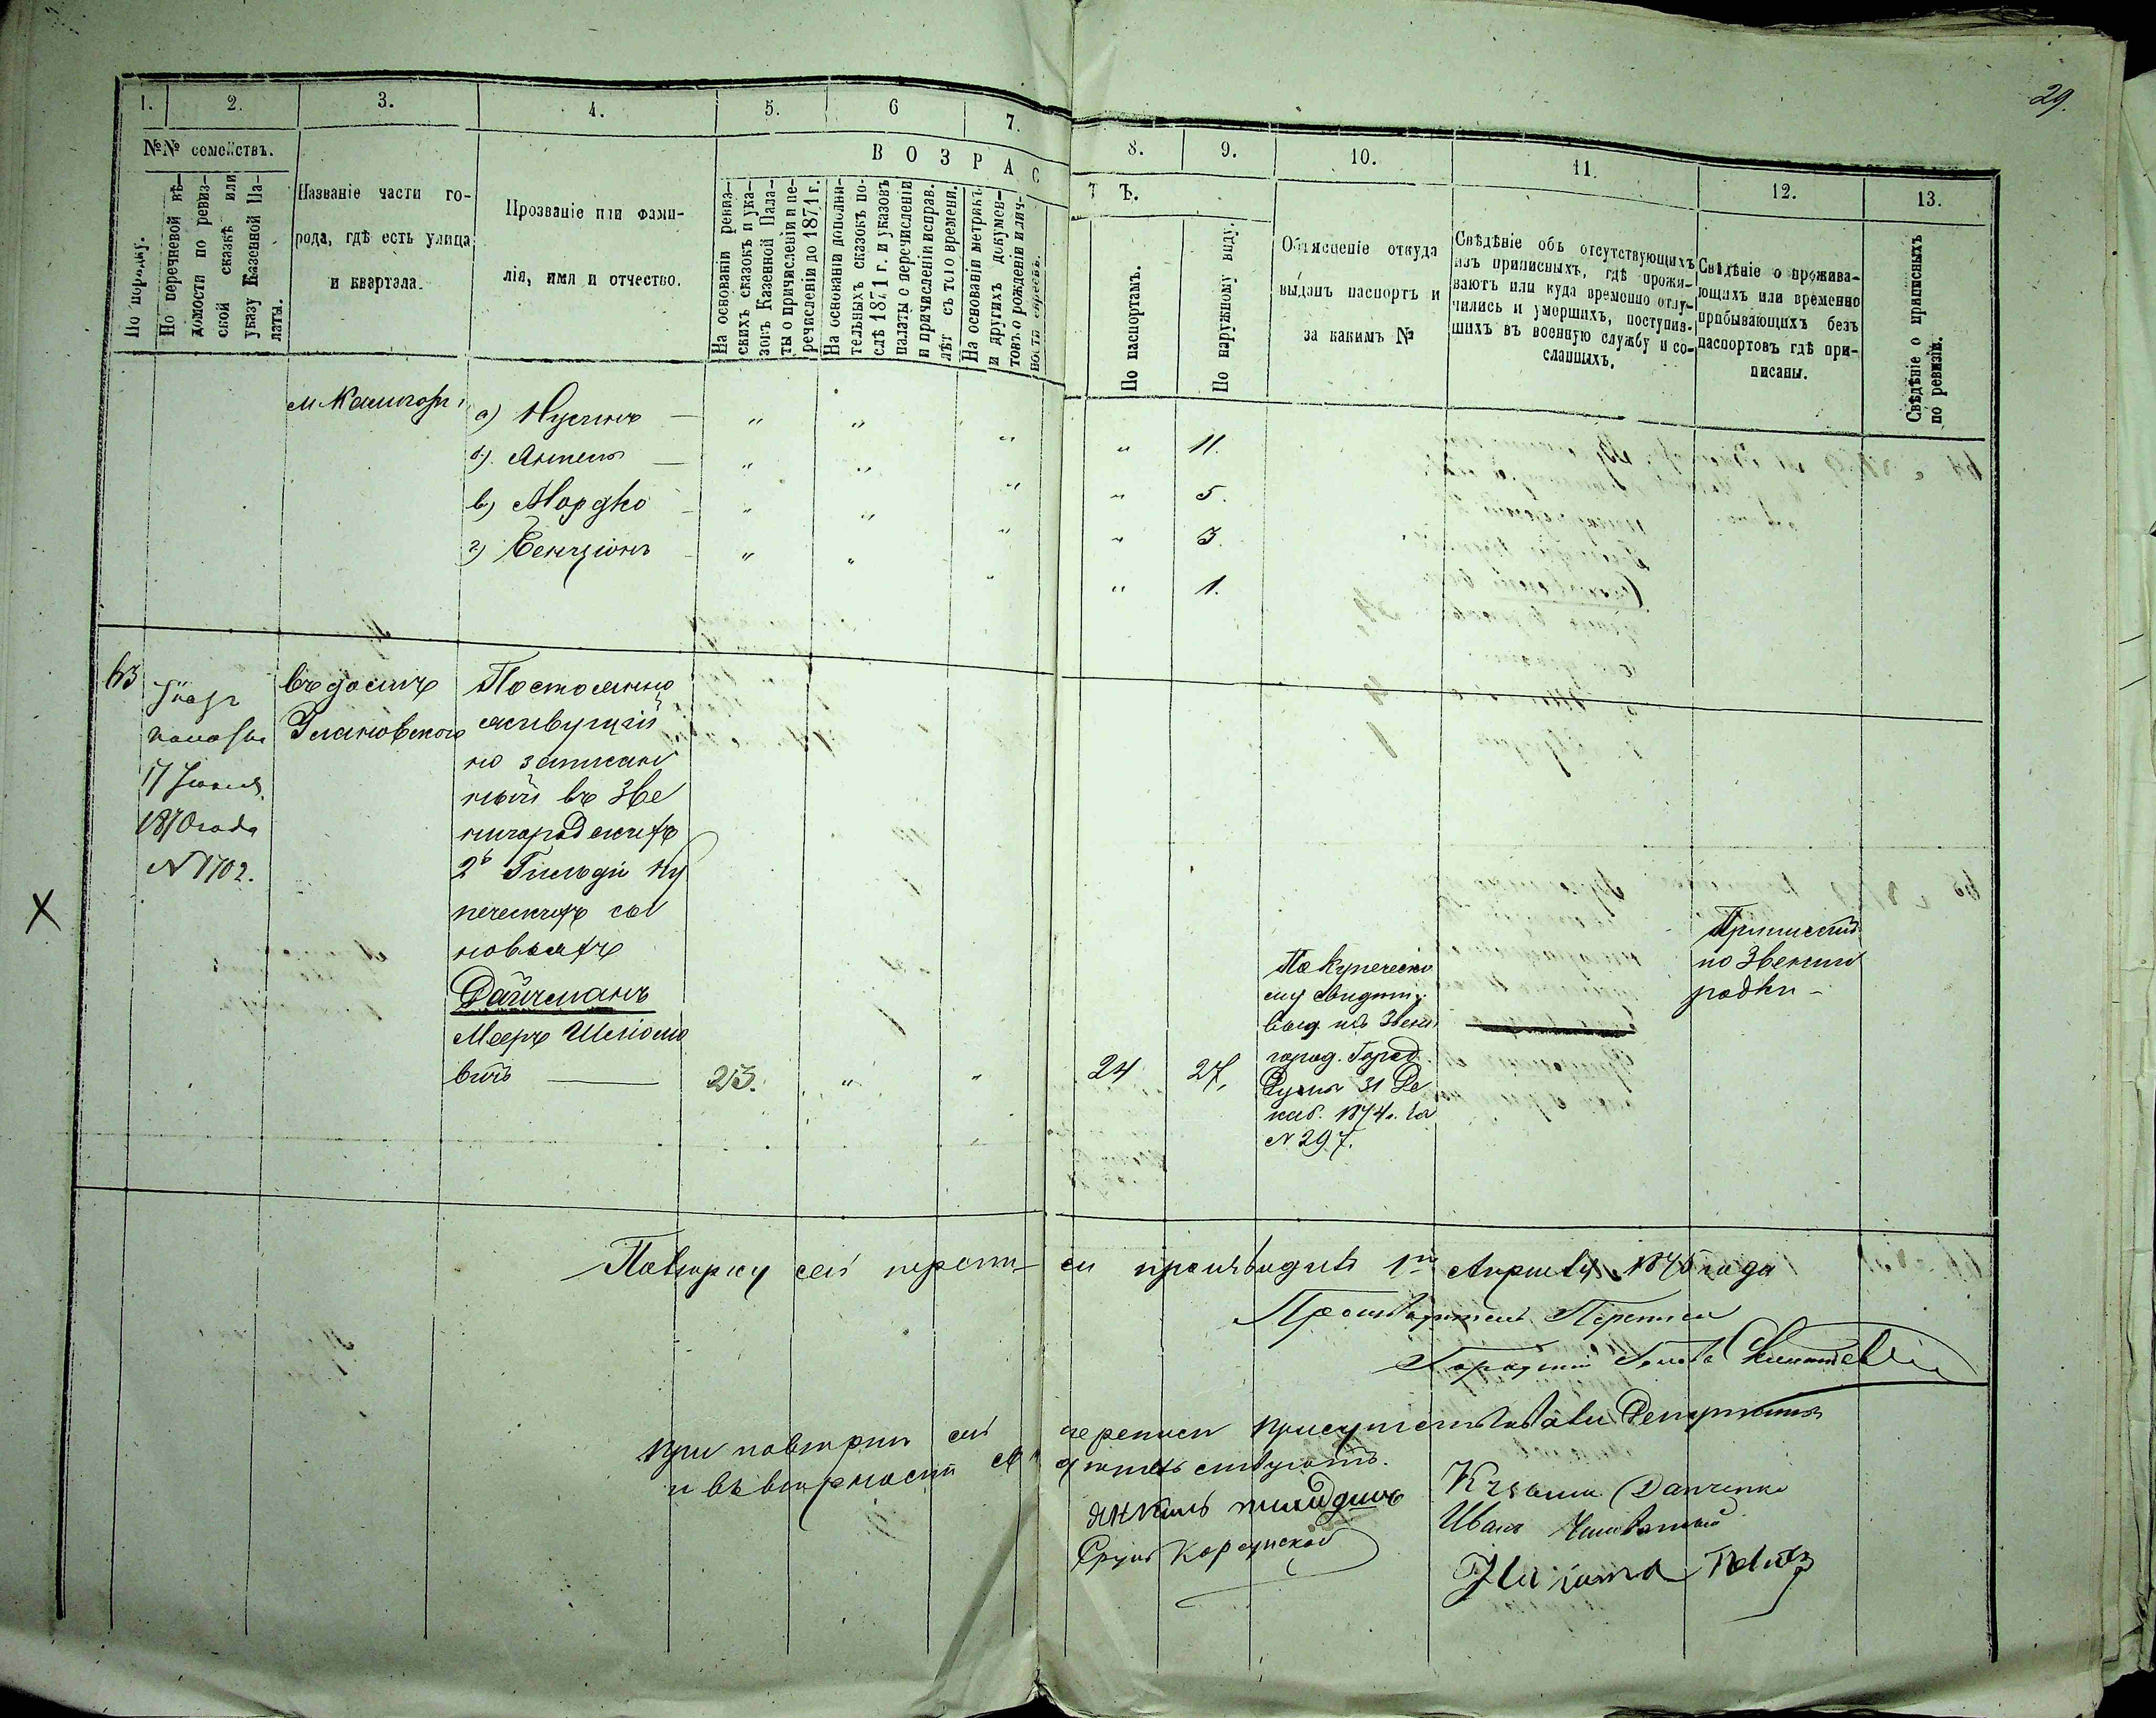 29.
1.
2.
3.
4.
5.
6
7.
8.
9.
10.
11.
12.
13.
№№ семействъ.
По порядку.
По перечневой вѣ-
домости по ревиз-
ской сказкѣ или
указу Казенной Па-
латы.
Названіе части го-
рода, гдѣ есть улица
и квартала.
Прозваніе или фами-
лія, имя и отчество.
ВОЗРАС
ТЪ.
На основаніи ревиз-
скихъ сказокъ и ука-
зовъ Казенной Пала-
ты о причисленіи и пе-
речисленіи до 1871 г.
На основаніи дополни-
тельныхъ сказокъ по-
слѣ 1871 г. и указовъ
палаты о перечисленіи
и причисленіи исправ.
лѣт съ того времени.
На основаніи метрикъ
и другихъ докумен-
товъ о рожденіи и лич-
По паспортамъ.
По наружному виду.
Объясненіе откуда
выданъ паспортъ и
за какимъ №
Свѣдѣніе объ отсутствующихъ
изъ приписныхъ, гдѣ прожи-
ваютъ или куда временно отлу-
чились и умершихъ, поступив-
шихъ въ военную службу и со-
сланныхъ.
Свѣдѣніе о прожива-
ющихъ или временно
прибывающихъ безъ
паспортовъ гдѣ при-
писаны.
Свѣдѣніе о приписныхъ
по ревизіи.
а) Нусинъ — " " " " 11.
б) Янкель — " " " " 5.
в) Мордко " " " " 3.
г) Бенціонъ " " " " 1.
63
Указъ
палаты
17 Іюня
1870 года
N 1702.
въ домѣ
Улановскаго
Постоянно
живущій
но записан
ный въ Зве
нигородскихъ
2й Гильдіи ку
печескихъ сы
новьяхъ
Дайчманъ
Мееръ Шліомо
вичъ — 23. " " 24 27.
По купеческо
му свидѣт.
выд. изъ Звени
город. Город.
Думы 31 Де
каб. 1874 г. за
N 297.
Приписной
по Звениго
родки –
Повѣрку сей перепи-си производилъ 1го Апрѣля 1875 года
Производитель Переписи
Городской Голова
При повѣркѣ сей переписи присутствовали Депутаты
и въ вѣрности свидѣтельствуютъ.
Янкель
Срулъ Корсунской
Данченко
Иванъ